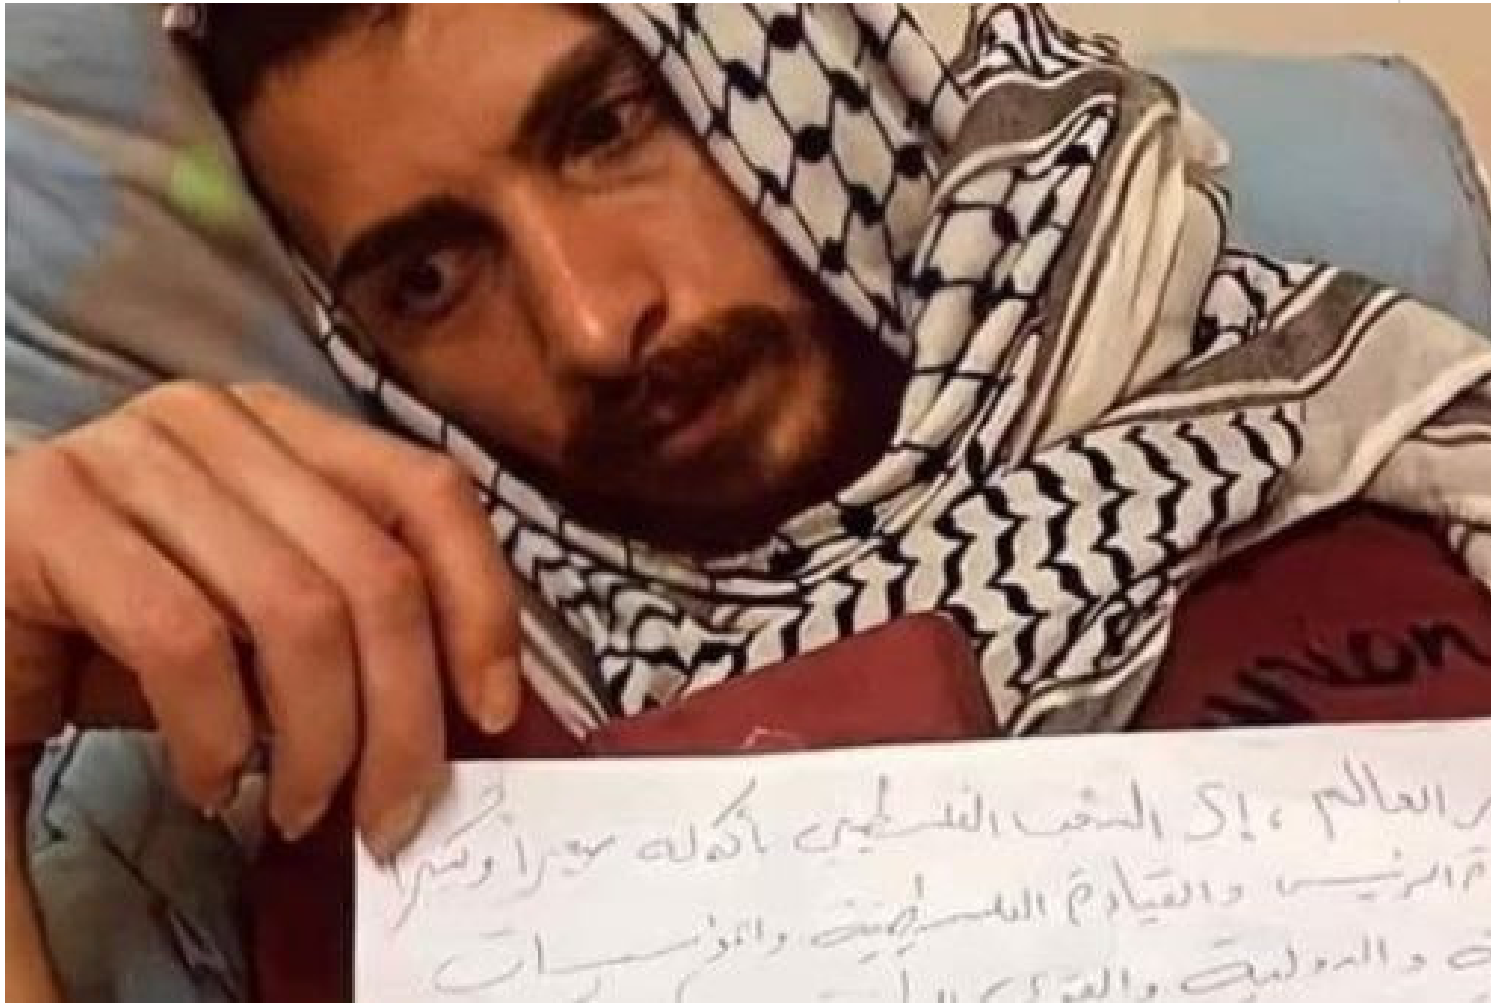 union
العالم، إلى الشعب الفلسطيني بأكمله صبراً وشكراً
الرئيس والقيادة الفلسطينية والمؤسسات
والدولية والقوى